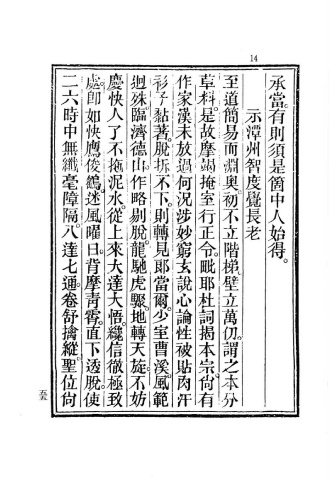 14
承當。有則須是箇中人始得。
示潭州智度覺長老
至道簡易而淵奧。初不立階梯。壁立萬仞。謂之本分
草料。是故摩竭掩室行正令。毗耶杜詞揭本宗。尚有
作家漢未放過。何況涉妙窮玄說心論性。被貼肉汗
衫子黏著。脫拆不下。則轉見郎當。爾少室曹溪。風範
迥殊。臨濟德山。作略剔脫。龍馳虎驟。地轉天旋。不妨
慶快人。了不拖泥水。從上來大達大悟。纔信徹極致
處。卽如快鷹俊鷂。迷風曜日。背摩青霄。直下透脫。使
二六時中無纖毫障隔。八達七通。卷舒擒縱。聖位尙